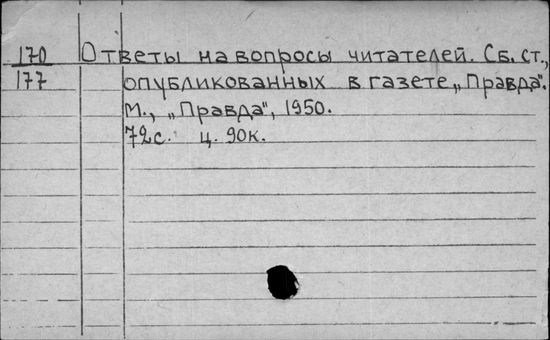 170 Ответы на вопросы читателей. Сб. ст.,
177 опубликованных в газете „Правда".
М., „Правда", 1950.
72с. ц. 90к.